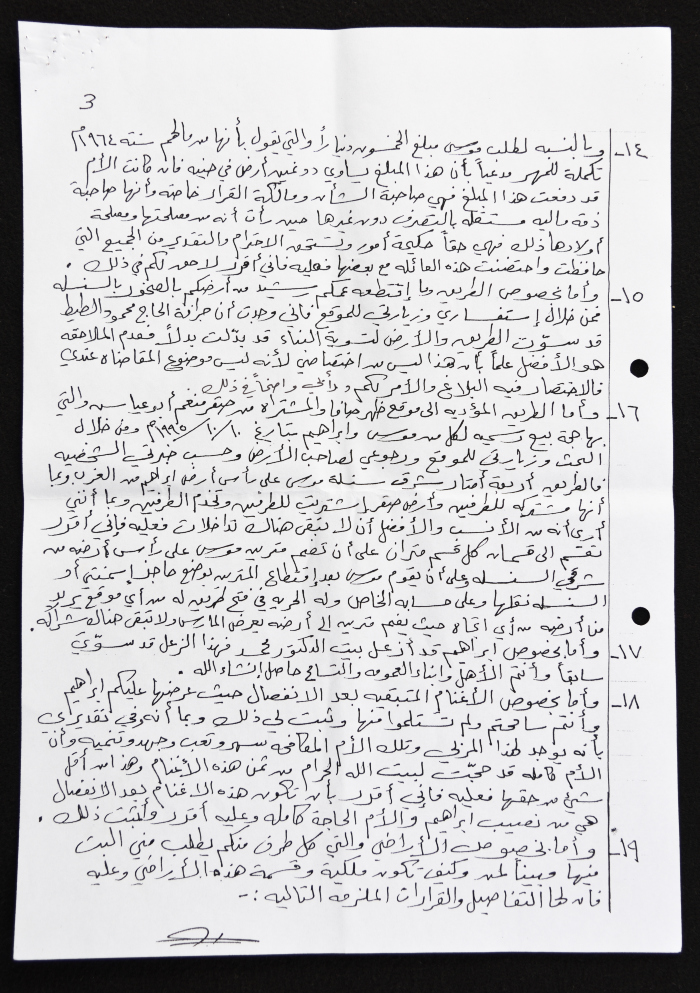 3
١٤- وبالنسبه لطلب موسى مبلغ الخمسون ديناراً والتي يقول بأنها من مالهم سنة ١٩٦٤م
تكملة للمهر مدعياً بأن هذا المبلغ يساوي دونمين أرض في حينه فإن كانت الأم
قد دفعت هذا المبلغ فهي صاحبة الشأن ومالكة القرار خاصة وأنها صاحبة
ذمة ماليه مستقله بالتصرف دون غيرها حين رأت أنه من مصلحتها ومصلحة
أولادها ذلك فهي حقاً حكيمة أمور وتستحق الاحترام والتقدير من الجميع التي
حافظت واحتضنت هذه العائله مع بعضها فعليه فاني أقرر لا حق لكم في ذلك .
١٥- وأما بخصوص الطريق وما إقتطعه عمكم رشيد من أرضكم بالصخور بالسنسله
فمن خلال إستفساري وزيارتي للموقع فاني وجدت أن جرافة الحاج محمود الطيط
قد سوّت الطريق والأرض لتسوية البناء قد بدّلت بدلاً فعدم الملاحقه
هو الأفضل علماً بأن هذا ليس من اختصاصي لأنه ليس موضوع المقاضاه عندي
فالاختصار فيه البلاغ والأمر لكم ورأيي واضحاً في ذلك
١٦- وأما الطريق المؤديه الى موقع ظهر صافا والمشتراه من صقر منعم أبو عباس والتي
بها حجة بيع رسميه لكل من موسى وابراهيم بتاريخ ١٠/١٠/١٩٩٥م ومن خلال
البحث وزيارتي للموقع ورجوعي لصاحب الأرض وحسب خبرتي الشخصيه
فالطريق أربعة أمتار شرق سنسلة موسى على رأس أرض ابراهيم من الغرب وبما
أنها مشتركه للطرفين وأرض صقر اشتريت للطرفين وتخدم الطرفين وبما أنني
أرى أنه من الأنسب والأفضل أن لا تبقى هناك تداخلات فعليه فإني أقرر
تقسم الى قسمان كل قسم متران على أن تضم مترين موسى على رأس أرضه من
شرقي السنسله وعلى أن يقوم موسى بعد إقتطاع المترين بوضع حاجز إسمنتي أو
السنسله نقلها وعلى حسابه الخاص وله الحريه في فتح طريق له من أي موقع يريد
من أرضه من أي اتجاه حيث يضم مترين إلى أرضه بعرض المارس ولا تبقى هناك شراكه.
١٧- وأما بخصوص ابراهيم قد أزعل بيت الدكتور محمد فهذا الزعل قد سوّيَ
سابقاً وأنتم الأهل وابناء العمومه والتسامح حاصل إنشاء الله .
١٨- وأما بخصوص الأغنام المتبقيه بعد الانفصال حيث عرضها عليكم ابراهيم
وأنتم سامحتم ولم تستلموا منها وثبت لي ذلك وبما أنه وفي تقديري
بأنه يوجد لهذا المربي وتلك الأم المكافحه سهر وتعب وجهد وتنميه وأن
الأم كامله قد حجّت لبيت الله الحرام من ثمن هذه الأغنام وهذا من أقل
شيئ من حقها فعليه فاني أقرر بأن تكون هذه الاغنام بعد الانفصال
هي من نصيب ابراهيم والأم الحاجة كامله وعليه أقرر وأثبت ذلك .
١٩- وأما بخصوص الأراضي والتي كل طرف منكم يطلب مني البت
فيها ومبيناً لمن وكيف تكون ملكية وقسمة هذه الأراضي وعليه
فان لها التفاصيل والقرارات الملزمه التاليه :-